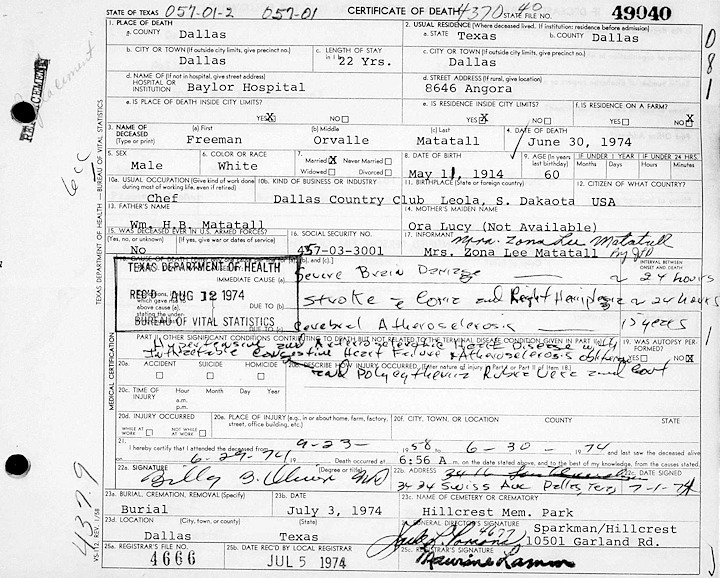 STATE OF TEXAS 057-01-2 057-01 CERTIFICATE OF DEATH 4370 40 STATE FILE NO. 49040
1. PLACE OF DEATH
a. COUNTY Dallas
2. USUAL RESIDENCE (Where deceased lived. If institution: residence before admission)
a. STATE Texas b. COUNTY Dallas
b. CITY OR TOWN (If outside city limits, give precinct no.) Dallas
c. LENGTH OF STAY 22 Yrs.
c. CITY OR TOWN (If outside city limits, give precinct no.) Dallas
d. NAME OF (If not in hospital, give street address) HOSPITAL OR INSTITUTION Baylor Hospital
d. STREET ADDRESS (If rural, give location) 8646 Angora
e. IS PLACE OF DEATH INSIDE CITY LIMITS? YES X NO
e. IS RESIDENCE INSIDE CITY LIMITS? YES X NO
f. IS RESIDENCE ON A FARM? YES NO X
3. NAME OF DECEASED (Type or print) (a) First Freeman (b) Middle Orvalle (c) Last Matatall
4. DATE OF DEATH June 30, 1974
5. SEX Male
6. COLOR OR RACE White
7. Married X Never Married Widowed Divorced
8. DATE OF BIRTH May 11, 1914
9. AGE (In years last birthday) 60
IF UNDER 1 YEAR Months Days
IF UNDER 24 HRS. Hours Min.
10a. USUAL OCCUPATION (Give kind of work done during most of working life, even if retired) Chef
10b. KIND OF BUSINESS OR INDUSTRY Dallas Country Club
11. BIRTHPLACE (State or foreign country) Leola, S. Dakaota
12. CITIZEN OF WHAT COUNTRY? USA
13. FATHER'S NAME Wm. H.B. Matatall
14. MOTHER'S MAIDEN NAME Ora Lucy (Not Available)
15. WAS DECEASED EVER IN U.S. ARMED FORCES? (Yes, no, or unknown) (If yes, give war or dates of service) No
16. SOCIAL SECURITY NO. 457-03-3001
17. INFORMANT Mrs. Zona Lee Matatall
Mrs. Zona Lee Matatall
INTERVAL BETWEEN ONSET AND DEATH
TEXAS DEPARTMENT OF HEALTH
REC'D AUG 12 1974
BUREAU OF VITAL STATISTICS
IMMEDIATE CAUSE (a) Severe Brain Damage ~ 24 hours
DUE TO (b) Stroke c Coma and Right Hemiplegia ~ 24 hours
DUE TO (c) Cerebral Atherosclerosis 15 years
PART II. OTHER SIGNIFICANT CONDITIONS CONTRIBUTING TO DEATH BUT NOT RELATED TO THE TERMINAL DISEASE CONDITION GIVEN IN PART I(a)
Hypertensive and Arteriosclerotic Heart Disease with
Intractable Congestive Heart Failure, Atherosclerosis obliterans
and Polycythemia Rubra Vera and Gout
19. WAS AUTOPSY PERFORMED? YES NO X
20a. ACCIDENT SUICIDE HOMICIDE
20b. DESCRIBE HOW INJURY OCCURRED. (Enter nature of injury in Part I or Part II of Item 18.)
20c. TIME OF INJURY Hour Month Day Year a.m. p.m.
20d. INJURY OCCURRED WHILE AT WORK NOT WHILE AT WORK
20e. PLACE OF INJURY (e.g., in or about home, farm, factory, street, office building, etc.)
20f. CITY, TOWN, OR LOCATION COUNTY STATE
21. I hereby certify that I attended the deceased from 9-23- 1958 to 6-30- 1974 and last saw the deceased alive
on 6-29-74 19 Death occurred at 6:56 A.m. on the date stated above, and to the best of my knowledge, from the causes stated.
22a. SIGNATURE (Degree or title) Billy B. Oliver MD
22b. ADDRESS 3434 Swiss Ave Dallas, Tex
22c. DATE SIGNED 7-1-74
23a. BURIAL, CREMATION, REMOVAL (Specify) Burial
23b. DATE July 3, 1974
23c. NAME OF CEMETERY OR CREMATORY Hillcrest Mem. Park
23d. LOCATION (City, town, or county) (State) Dallas Texas
24. FUNERAL DIRECTOR'S SIGNATURE 4677 Sparkman/Hillcrest
10501 Garland Rd.
25a. REGISTRAR'S FILE NO. 4666
25b. DATE REC'D BY LOCAL REGISTRAR JUL 5 1974
25c. REGISTRAR'S SIGNATURE
TEXAS DEPARTMENT OF HEALTH — BUREAU OF VITAL STATISTICS
MEDICAL CERTIFICATION
VS-112 REV. 1/58
4379
D81